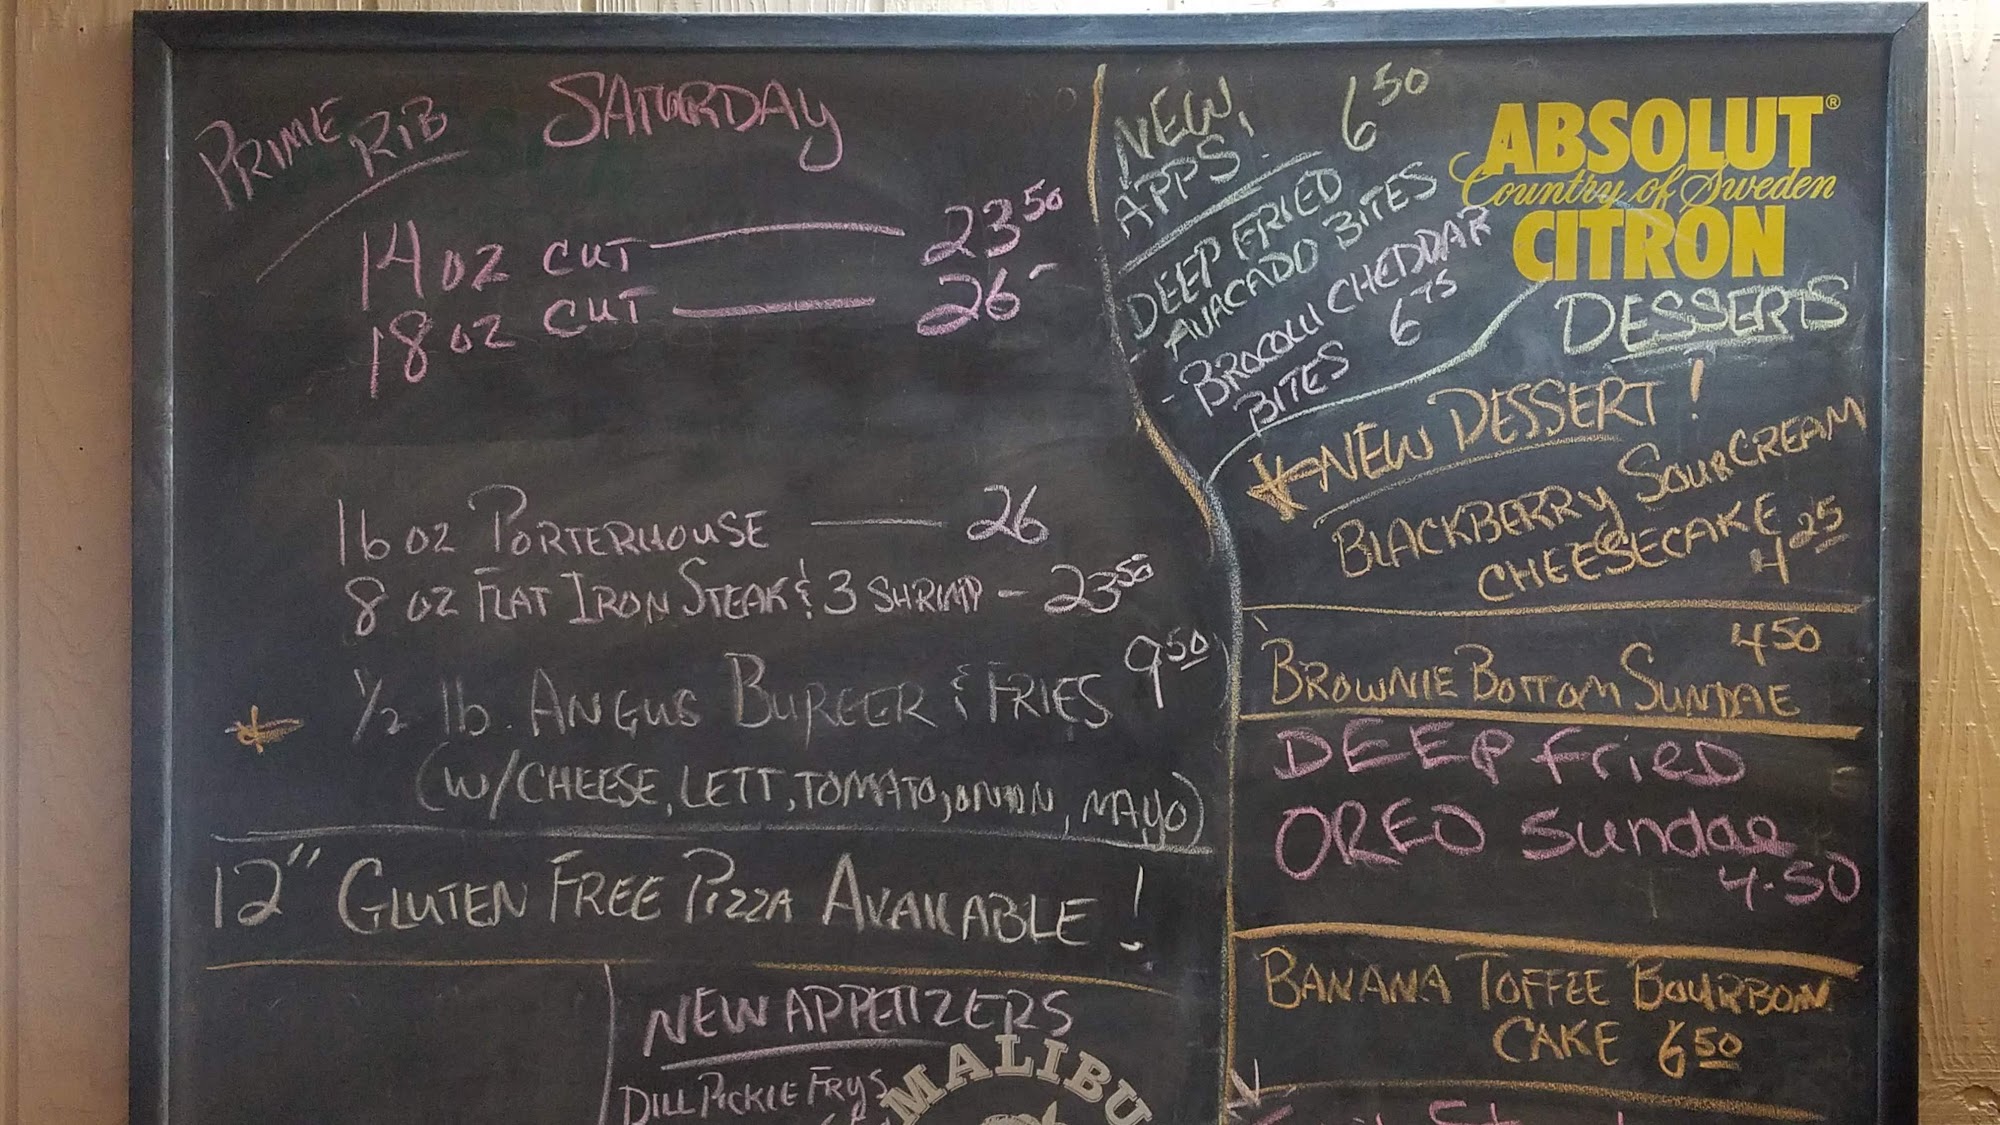 PRIME RIB SATURDAY
14 OZ CUT 23 50
18 OZ CUT 26 -
16 OZ PORTERHOUSE 26
8 OZ FLAT IRON STEAK & 3 SHRIMP - 23 50
1/2 lb. ANGUS BURGER & FRIES 9 50
(W/CHEESE, LETT, TOMATO, ONION, MAYO)
12" GLUTEN FREE PIZZA AVAILABLE!
NEW APPETIZERS
DILL PICKLE FRYS
MALIBU
NEW
APPS!
6 50
DEEP FRIED
- AVACADO BITES
- BROCOLLI CHEDDAR
BITES 6 75
ABSOLUT®
Country of Sweden
CITRON
DESSERTS
NEW DESSERT!
BLACKBERRY SOUR CREAM
CHEESECAKE
4 25
4 50
BROWNIE BOTTOM SUNDAE
DEEP FriED
OREO Sundae
4.50
BANANA TOFFEE BOURBON
CAKE 6 50